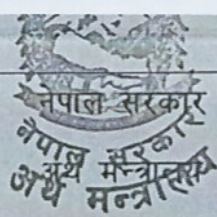 नेपाल सरकार
नेपाल सरकार
अर्थ मन्त्रालय
अर्थ मन्त्रालय